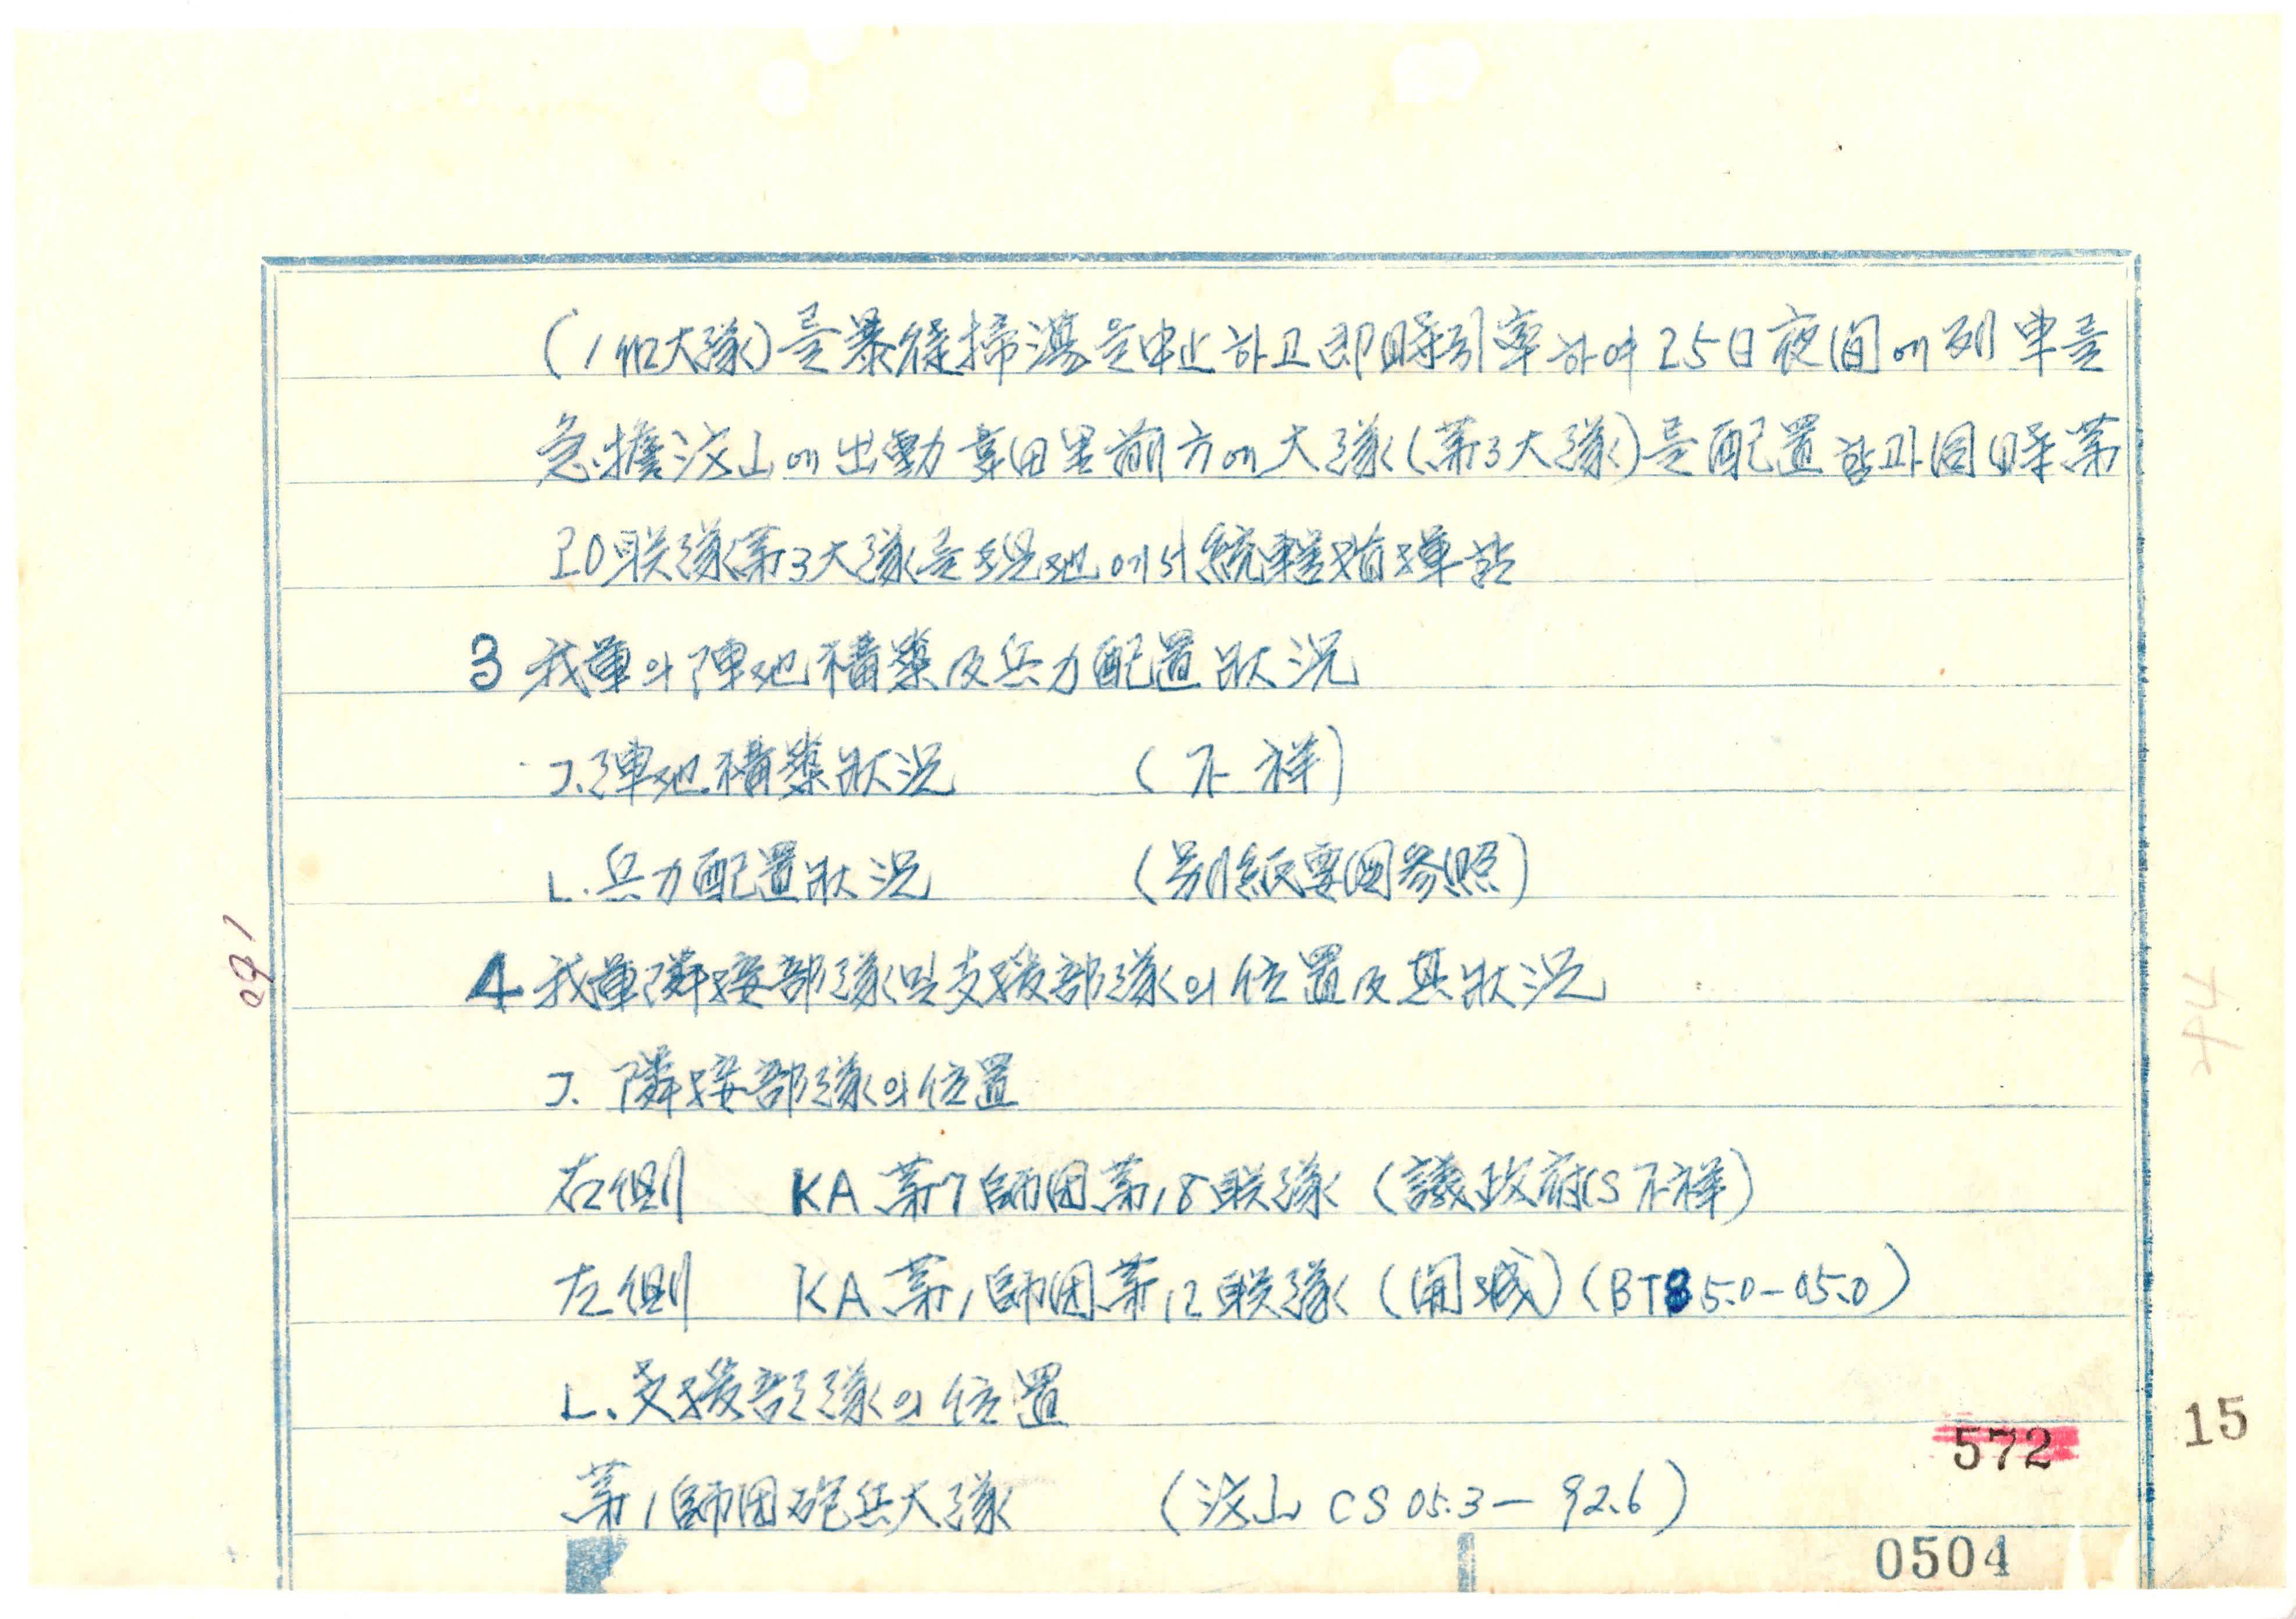 (1個大隊)을 暴徒掃蕩을 中止하고 即時引率하여 25日夜間에 列車를
急据汶山에 出動 葦田里前方에 大隊(第3大隊)를 配置함과同時 第
20联隊第3大隊를 現地에서 統轄指揮함
3 我軍의 陣地構築及兵力配置狀況
ㄱ.陣地構築狀況 (不祥)
ㄴ.兵力配置狀況 (別紙要図参照)
4 我軍隣接部隊및支援部隊의 位置及其狀況
ㄱ. 隣接部隊의 位置
右側 KA 第7師団第18联隊 (議政府CS不祥)
左側 KA 第1師団第12联隊 (開城) (BT85.0-05.0)
ㄴ.支援部隊의 位置
第1師団砲兵大隊 (汶山 CS 05.3-92.6)
572
15
0504